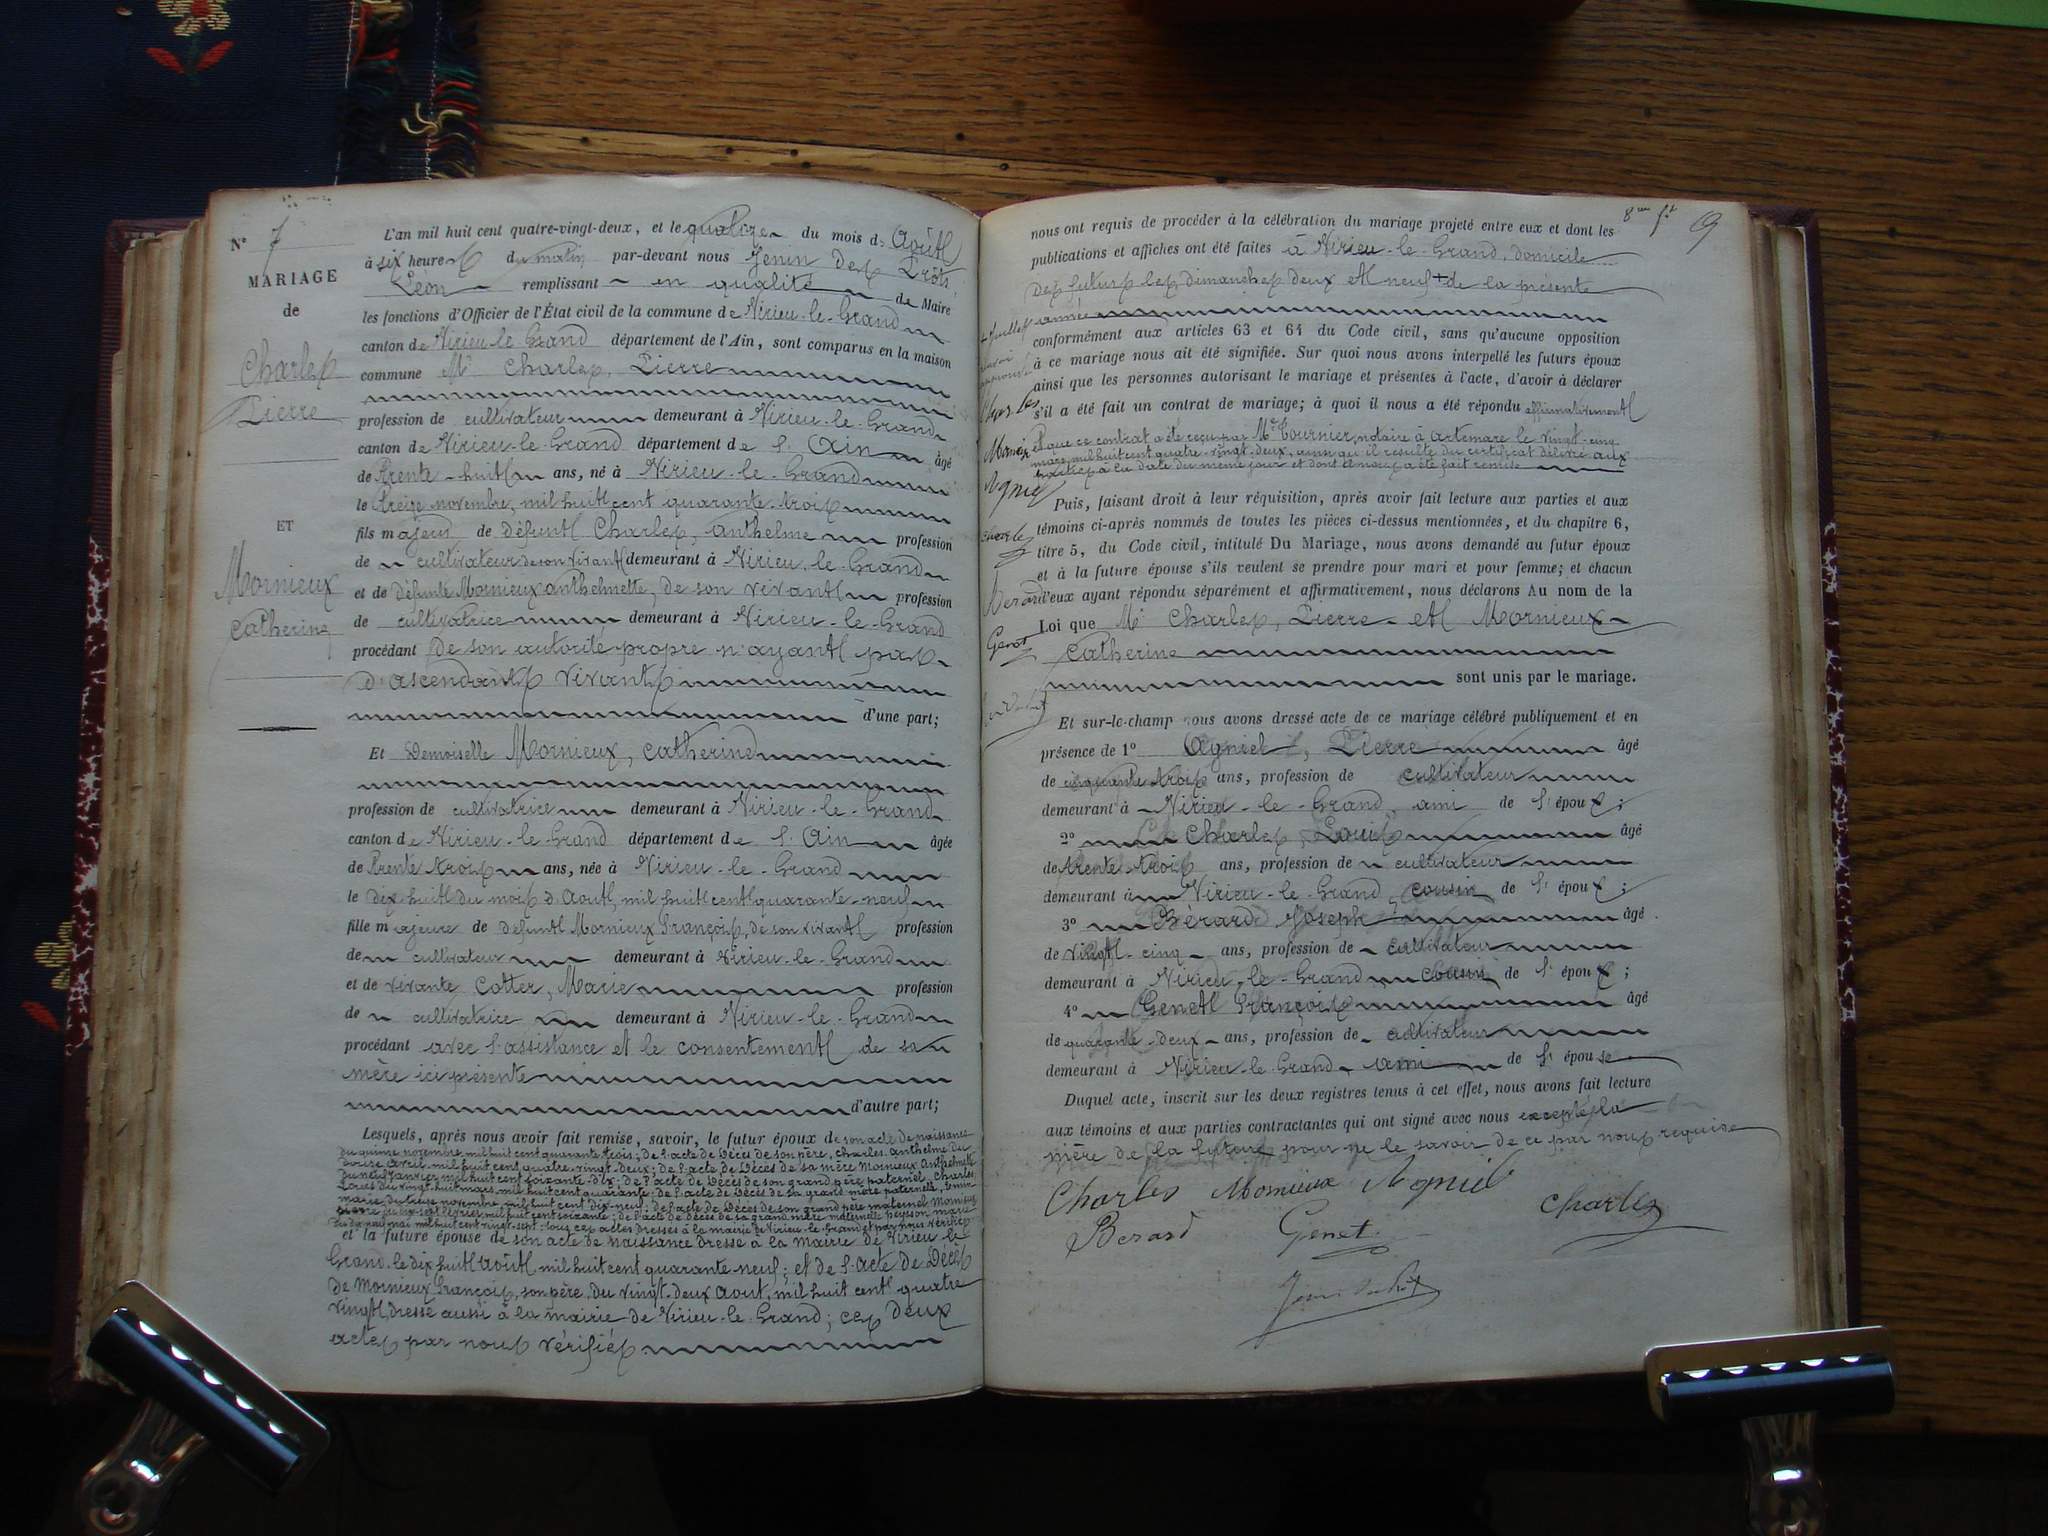 N° 7
MARIAGE
de
Charles
Pierre
ET
Mornieux
Catherine
L'an mil huit cent quatre-vingt-deux, et le quatorze du mois d'Août
à six heures du matin par-devant nous Jenin des Prôts
Léon remplissant en qualité de Maire
les fonctions d'Officier de l'État civil de la commune de Virieu-le-Grand
canton de Virieu-le-Grand département de l'Ain, sont comparus en la maison
commune Mr Charles, Pierre
profession de cultivateur demeurant à Virieu-le-Grand
canton de Virieu-le-Grand département de l'Ain âgé
de trente-huit ans, né à Virieu-le-Grand
le treize novembre, mil huit cent quarante-trois
fils majeur de défunt Charles, Anthelme profession
de cultivateur de son vivant demeurant à Virieu-le-Grand
et de défunte Mornieux anthelmette, de son vivant profession
de cultivatrice demeurant à Virieu-le-Grand
procédant de son autorité propre n'ayant pas
d'ascendants vivants
d'une part;
Et Demoiselle Mornieux, Catherine
profession de cultivatrice demeurant à Virieu-le-Grand
canton de Virieu-le-Grand département de l'Ain âgée
de trente trois ans, née à Virieu-le-Grand
le dix-huit du mois d'Août, mil huit cent quarante-neuf
fille majeure de défunt Mornieux François, de son vivant profession
de cultivateur demeurant à Virieu-le-Grand
et de vivante Cotter, Marie profession
de cultivatrice demeurant à Virieu-le-Grand
procédant avec l'assistance et le consentement de sa
mère ici présente
d'autre part;
Lesquels, après nous avoir fait remise, savoir, le futur époux de son acte de naissance
du quinze novembre mil huit cent quarante trois; de l'acte de Décès de son père, Charles Anthelme du
avril mil huit cent quatre-vingt-deux; de l'acte de Décès de sa mère Mornieux Anthelmette
janvier mil huit cent soixante-dix; de l'acte de Décès de son grand père paternel, Charles
du vingt-huit mars, mil huit cent quarante; de l'acte de Décès de sa grand mère paternelle
marie, du treize novembre mil huit cent dix-neuf; de l'acte de Décès de son grand père maternel Mornieux
pierre février, mil huit cent soixante; de l'acte de décès de sa grand mère maternelle Peysson marie
mai mil huit cent vingt-sept. Tous ces actes dressés à la mairie de Virieu-le-Grand et par nous vérifiés
et la future épouse de son acte de naissance dressé à la mairie de Virieu le
Grand le dix huit Août mil huit cent quarante neuf; et de l'acte de Décès
de Mornieux François, son père, du vingt-deux août, mil huit cent quatre
vingt, dressé aussi à la mairie de Virieu-le-Grand; ces deux
actes par nous vérifiés
8me ft 9
nous ont requis de procéder à la célébration du mariage projeté entre eux et dont les
publications et affiches ont été faites à Virieu-le-Grand, domicile
des futurs les dimanches deux et neuf + de la présente
année
+ Juillet
renvoi
approuvé
Charles
Mornieux
Agniel
Charles
Berard
Genet
conformément aux articles 63 et 64 du Code civil, sans qu'aucune opposition
à ce mariage nous ait été signifiée. Sur quoi nous avons interpellé les futurs époux
ainsi que les personnes autorisant le mariage et présentes à l'acte, d'avoir à déclarer
s'il a été fait un contrat de mariage; à quoi il nous a été répondu affirmativement
et que ce contrat a été reçu par Me Tournier, notaire à Artemare le vingt-cinq
mars, mil huit cent quatre-vingt-deux, ainsi qu'il résulte du certificat délivré aux
parties à la date du même jour et dont il nous a été fait remise
Puis, faisant droit à leur réquisition, après avoir fait lecture aux parties et aux
témoins ci-après nommés de toutes les pièces ci-dessus mentionnées, et du chapitre 6,
titre 5, du Code civil, intitulé Du Mariage, nous avons demandé au futur époux
et à la future épouse s'ils veulent se prendre pour mari et pour femme; et chacun
d'eux ayant répondu séparément et affirmativement, nous déclarons Au nom de la
Loi que Mr Charles, Pierre et Mornieux
Catherine
sont unis par le mariage.
Et sur-le-champ nous avons dressé acte de ce mariage célébré publiquement et en
présence de 1° Agniel, Pierre âgé
de cinquante trois ans, profession de cultivateur
demeurant à Virieu-le-Grand, ami de l'époux;
2° Charles, Louis âgé
de trente-trois ans, profession de cultivateur
demeurant à Virieu-le-Grand, cousin de l'époux;
3° Bérard Joseph âgé
de vingt-cinq ans, profession de cultivateur
demeurant à Virieu-le-Grand cousin de l'époux;
4° Genet François âgé
de quarante-deux ans, profession de cultivateur
demeurant à Virieu-le-Grand ami de l'épouse
Duquel acte, inscrit sur les deux registres tenus à cet effet, nous avons fait lecture
aux témoins et aux parties contractantes qui ont signé avec nous excepté la
mère de la future pour ne le savoir de ce par nous requise
Charles Mornieux Agniel Charles
Berard Genet